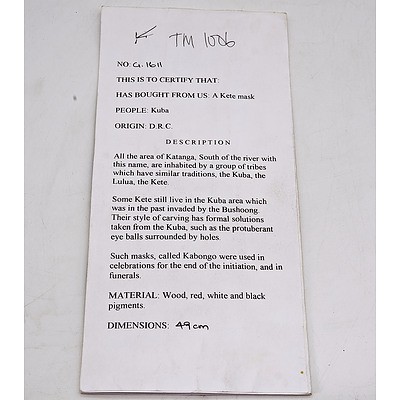 K TM 1006
NO: G.1611
THIS IS TO CERTIFY THAT:
HAS BOUGHT FROM US: A Kete mask
PEOPLE: Kuba
ORIGIN: D.R.C.
DESCRIPTION
All the area of Katanga, South of the river with
this name, are inhabited by a group of tribes
which have similar traditions, the Kuba, the
Lulua, the Kete.
Some Kete still live in the Kuba area which
was in the past invaded by the Bushoong.
Their style of carving has formal solutions
taken from the Kuba, such as the protuberant
eye balls surrounded by holes.
Such masks, called Kabongo were used in
celebrations for the end of the initiation, and in
funerals.
MATERIAL: Wood, red, white and black
pigments.
DIMENSIONS: 49cm